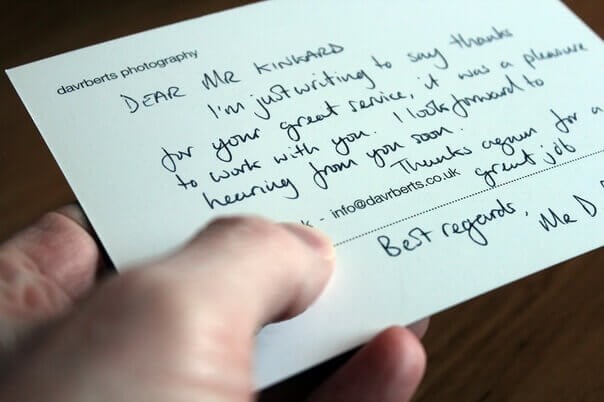 davrberts photography
DEAR MR KINKARD
I'm just writing to say thanks
for your great service, it was a pleasure
to work with you. I look forward to
hearing from you soon.
Thanks again for a
great job
- info@davrberts.co.uk
Best regards,